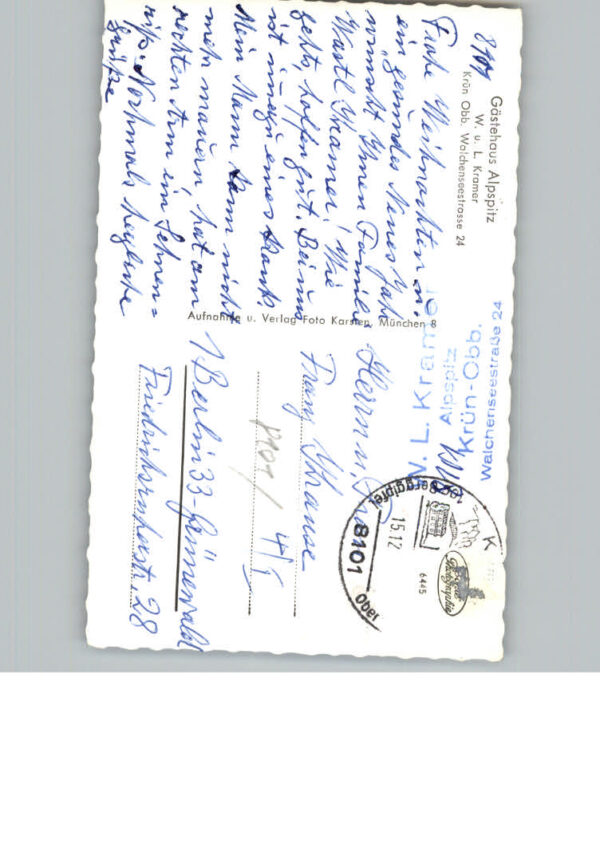 8101
Gästehaus Alpspitz
W. u. L. Kramer
Krün Obb. Walchenseestrasse 24
Frohe Weihnachten u.
ein gesundes Neues Jahr
wünscht Ihnen Familie
Wastl Kramer! Wie
gehts, hoffen gut. Bei uns
ist immer eines krank
Mein Mann kann nicht
mehr mauern, hat am
rechten Arm ein Sehnen=
riß. Nochmals herzliche
Grüße
Aufnahme u. Verlag Foto Karsten, München 8
W. L. Kramer
Alpspitz
Krün-Obb.
Walchenseestraße 24
8101 Ober
100 Berggipfel
15.12
K
6445
Herrn u.
Franz Krause
4/I
8101/
1 Berlin 33-Grünewald
28